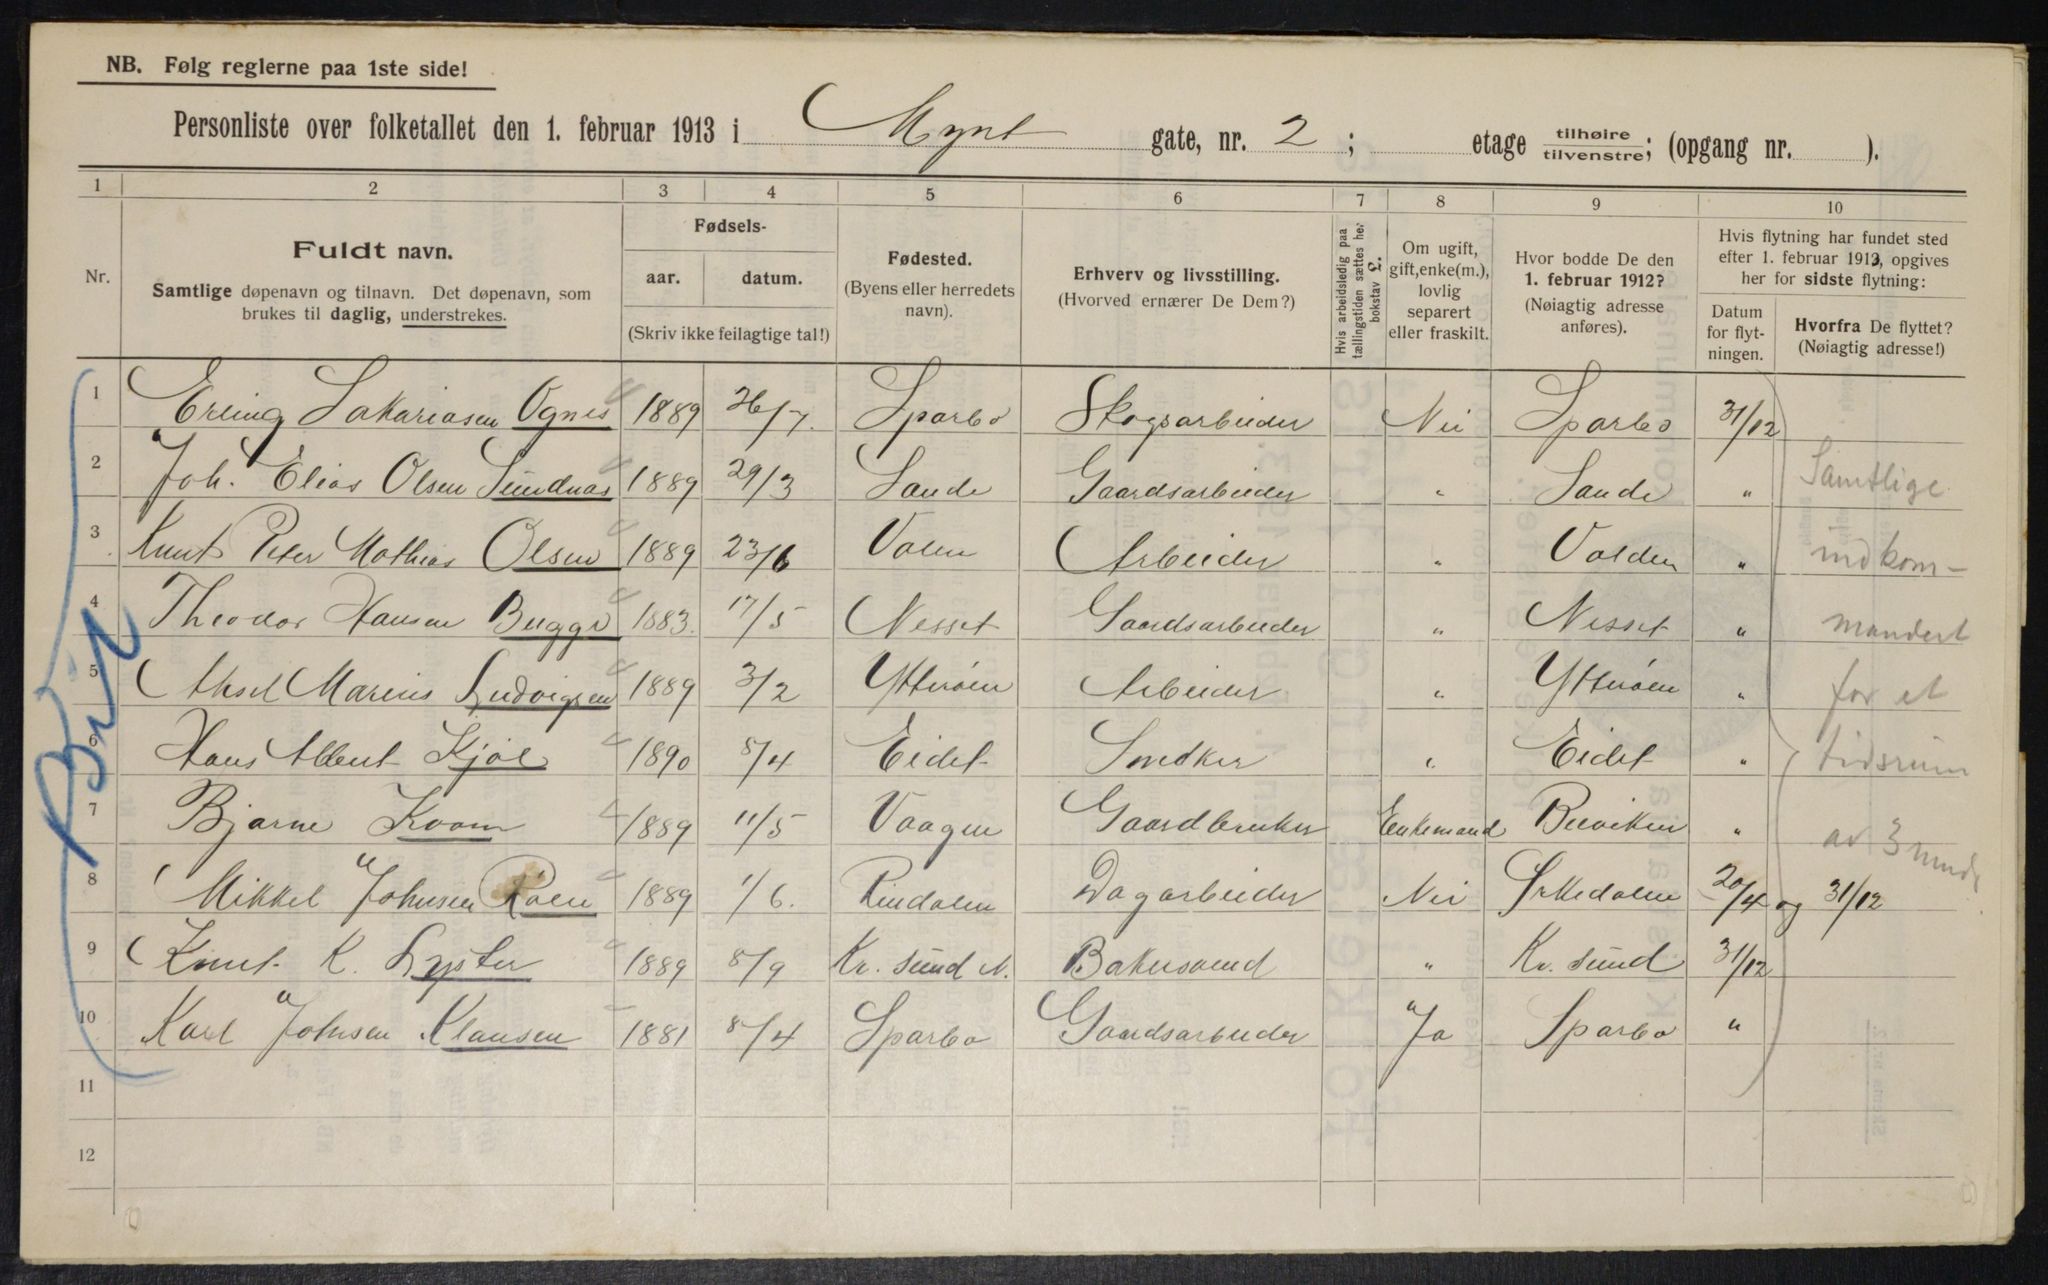 NB. Følg reglerne paa 1ste side!
Personliste over folketallet den 1. februar 1913 i Mynt gate, nr. 2; etage tilhøire tilvenstre; (opgang nr. ).
1 2 3 4 5 6 7 8 9 10
Nr.
Fuldt navn.
Samtlige døpenavn og tilnavn. Det døpenavn, som
brukes til daglig, understrekes.
Fødsels-
aar. datum.
(Skriv ikke feilagtige tal!)
Fødested.
(Byens eller herredets
navn).
Erhverv og livsstilling.
(Hvorved ernærer De Dem?)
Hvis arbeidsledig paa
tællingstiden sættes her
bokstav L.
Om ugift,
gift, enke(m.),
lovlig
separert
eller fraskilt.
Hvor bodde De den
1. februar 1912?
(Nøiagtig adresse
anføres).
Hvis flytning har fundet sted
efter 1. februar 1912, opgives
her for sidste flytning:
Datum
for flyt-
ningen.
Hvorfra De flyttet?
(Nøiagtig adresse!)
1 Erling Sakariasen Ognes 1889 26/7. Sparbo Skogsarbeider Nei Sparbo 31/12
2 Joh. Elias Olsen Sundnas 1889 29/3 Sande Gaardsarbeider " Sande "
3 Knut Peter Mathias Olsen 1889 23/6 Volen Arbeider " Volden "
4 Theodor Hansen Bugge 1883. 17/5 Nesset Gaardsarbeider " Nesset "
5 Aksel Marius Ludvigsen 1889 3/2 Ytterøen Arbeider " Ytterøen "
6 Hans Albert Kjøl 1890 5/4 Eidet Snedker " Eidet "
7 Bjarne Kvam 1889 11/5 Vaagen Gaardbruker Enkemand "
8 Mikkel Johnsen Roen 1889 1/6. Rindalen Dagarbeider Nei 20/4 og 31/12
9 Knut K. Lyster 1889 8/9 Kr. sund N. Bakersvend " Kr. sund 31/12
10 Karl Johnsen Klausen 1881 8/4 Sparbo Gaardsarbeider Ja Sparbo "
11
12
Samtlige
indkom-
mandert
for et
tidsrum
av 3 mnd.